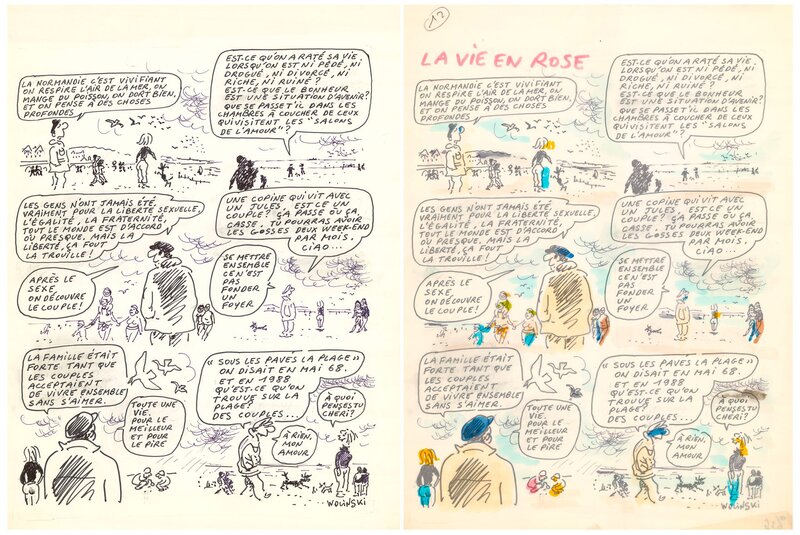 LA NORMANDIE C'EST VIVIFIANT
ON RESPIRE L'AIR DE LA MER, ON
MANGE DU POISSON, ON DORT BIEN,
ET ON PENSE À DES CHOSES
PROFONDES
EST-CE QU'ON A RATÉ SA VIE.
LORSQU'ON EST NI PÉDÉ, NI
DROGUÉ, NI DIVORCÉ, NI
RICHE, NI RUINÉ ?
EST-CE QUE LE BONHEUR
EST UNE SITUATION D'AVENIR ?
QUE SE PASSE T'IL DANS LES
CHAMBRES À COUCHER DE CEUX
QUI VISITENT LES "SALONS
DE L'AMOUR" ?
LES GENS N'ONT JAMAIS ÉTÉ,
VRAIMENT POUR LA LIBERTÉ SEXUELLE,
L'ÉGALITÉ, LA FRATERNITÉ,
TOUT LE MONDE EST D'ACCORD
OU PRESQUE, MAIS LA
LIBERTÉ, ÇA FOUT
LA TROUILLE !
UNE COPINE QUI VIT AVEC
UN JULES, EST CE UN
COUPLE ? ÇA PASSE OU ÇA
CASSE. TU POURRAS AVOIR
LES GOSSES DEUX WEEK-END
PAR MOIS.
CIAO...
APRÈS LE
SEXE,
ON DÉCOUVRE
LE COUPLE !
SE METTRE
ENSEMBLE
CE N'EST
PAS
FONDER
UN
FOYER
LA FAMILLE ÉTAIT
FORTE TANT QUE
LES COUPLES
ACCEPTAIENT
DE VIVRE ENSEMBLE
SANS S'AIMER.
TOUTE UNE
VIE.
POUR LE
MEILLEUR
ET POUR
LE PIRE
« SOUS LES PAVES LA PLAGE »
ON DISAIT EN MAI 68.
ET EN 1988
QU'EST-CE QU'ON
TROUVE SUR LA
PLAGE ?
DES COUPLES...
À QUOI
PENSES TU
CHERI ?
À RIEN, MON
AMOUR
WOLINSKI
12
LA VIE EN ROSE
LA NORMANDIE C'EST VIVIFIANT
ON RESPIRE L'AIR DE LA MER, ON
MANGE DU POISSON, ON DORT BIEN,
ET ON PENSE À DES CHOSES
PROFONDES
EST-CE QU'ON A RATÉ SA VIE.
LORSQU'ON EST NI PÉDÉ, NI
DROGUÉ, NI DIVORCÉ, NI
RICHE, NI RUINÉ ?
EST-CE QUE LE BONHEUR
EST UNE SITUATION D'AVENIR ?
QUE SE PASSE T'IL DANS LES
CHAMBRES À COUCHER DE CEUX
QUI VISITENT LES "SALONS
DE L'AMOUR" ?
LES GENS N'ONT JAMAIS ÉTÉ,
VRAIMENT POUR LA LIBERTÉ SEXUELLE,
L'ÉGALITÉ, LA FRATERNITÉ,
TOUT LE MONDE EST D'ACCORD
OU PRESQUE, MAIS LA
LIBERTÉ, ÇA FOUT
LA TROUILLE !
UNE COPINE QUI VIT AVEC
UN JULES, EST CE UN
COUPLE ? ÇA PASSE OU ÇA
CASSE. TU POURRAS AVOIR
LES GOSSES DEUX WEEK-END
PAR MOIS.
CIAO...
APRÈS LE
SEXE,
ON DÉCOUVRE
LE COUPLE !
SE METTRE
ENSEMBLE
CE N'EST
PAS
FONDER
UN
FOYER
LA FAMILLE ÉTAIT
FORTE TANT QUE
LES COUPLES
ACCEPTAIENT
DE VIVRE ENSEMBLE
SANS S'AIMER.
TOUTE UNE
VIE.
POUR LE
MEILLEUR
ET POUR
LE PIRE
« SOUS LES PAVES LA PLAGE »
ON DISAIT EN MAI 68.
ET EN 1988
QU'EST-CE QU'ON
TROUVE SUR LA
PLAGE ?
DES COUPLES...
À QUOI
PENSES TU
CHERI ?
À RIEN, MON
AMOUR
WOLINSKI